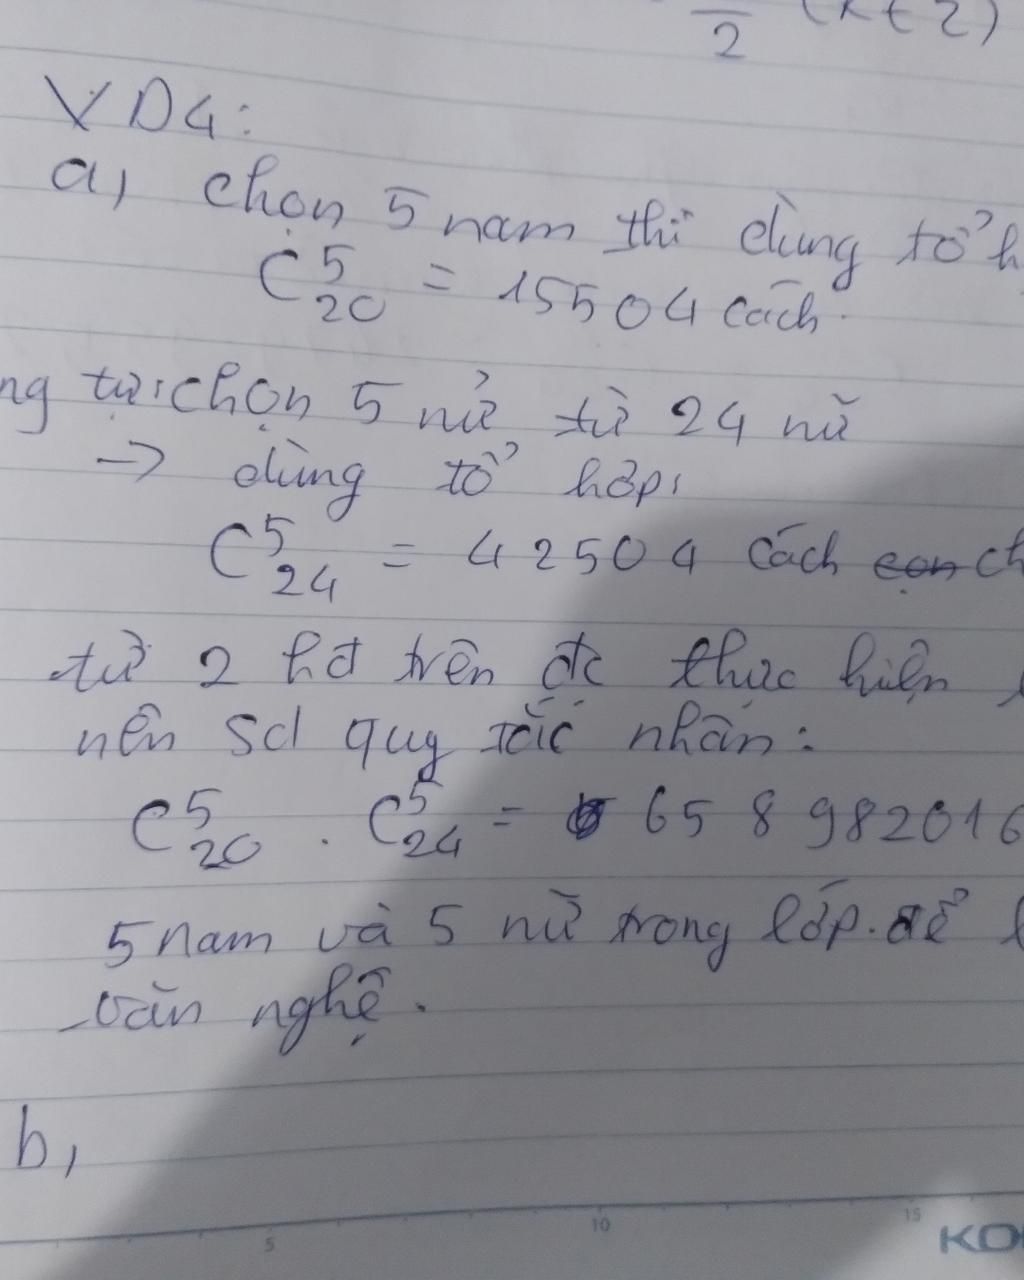 2 (k∈Z)
VD4:
a, chọn 5 nam thì dùng tổ h
C⁵₂₀ = 15504 cách.
ng tự: chọn 5 nử từ 24 nữ
→ dùng tổ hợp,
C⁵₂₄ = 42504 cách ch
từ 2 hđ trên đc thực hiện l
nên sd quy tắc nhân:
C⁵₂₀ . C⁵₂₄ = 658982016
5 nam và 5 nữ trong lớp. để l
văn nghệ.
b,
5 10 15
KO